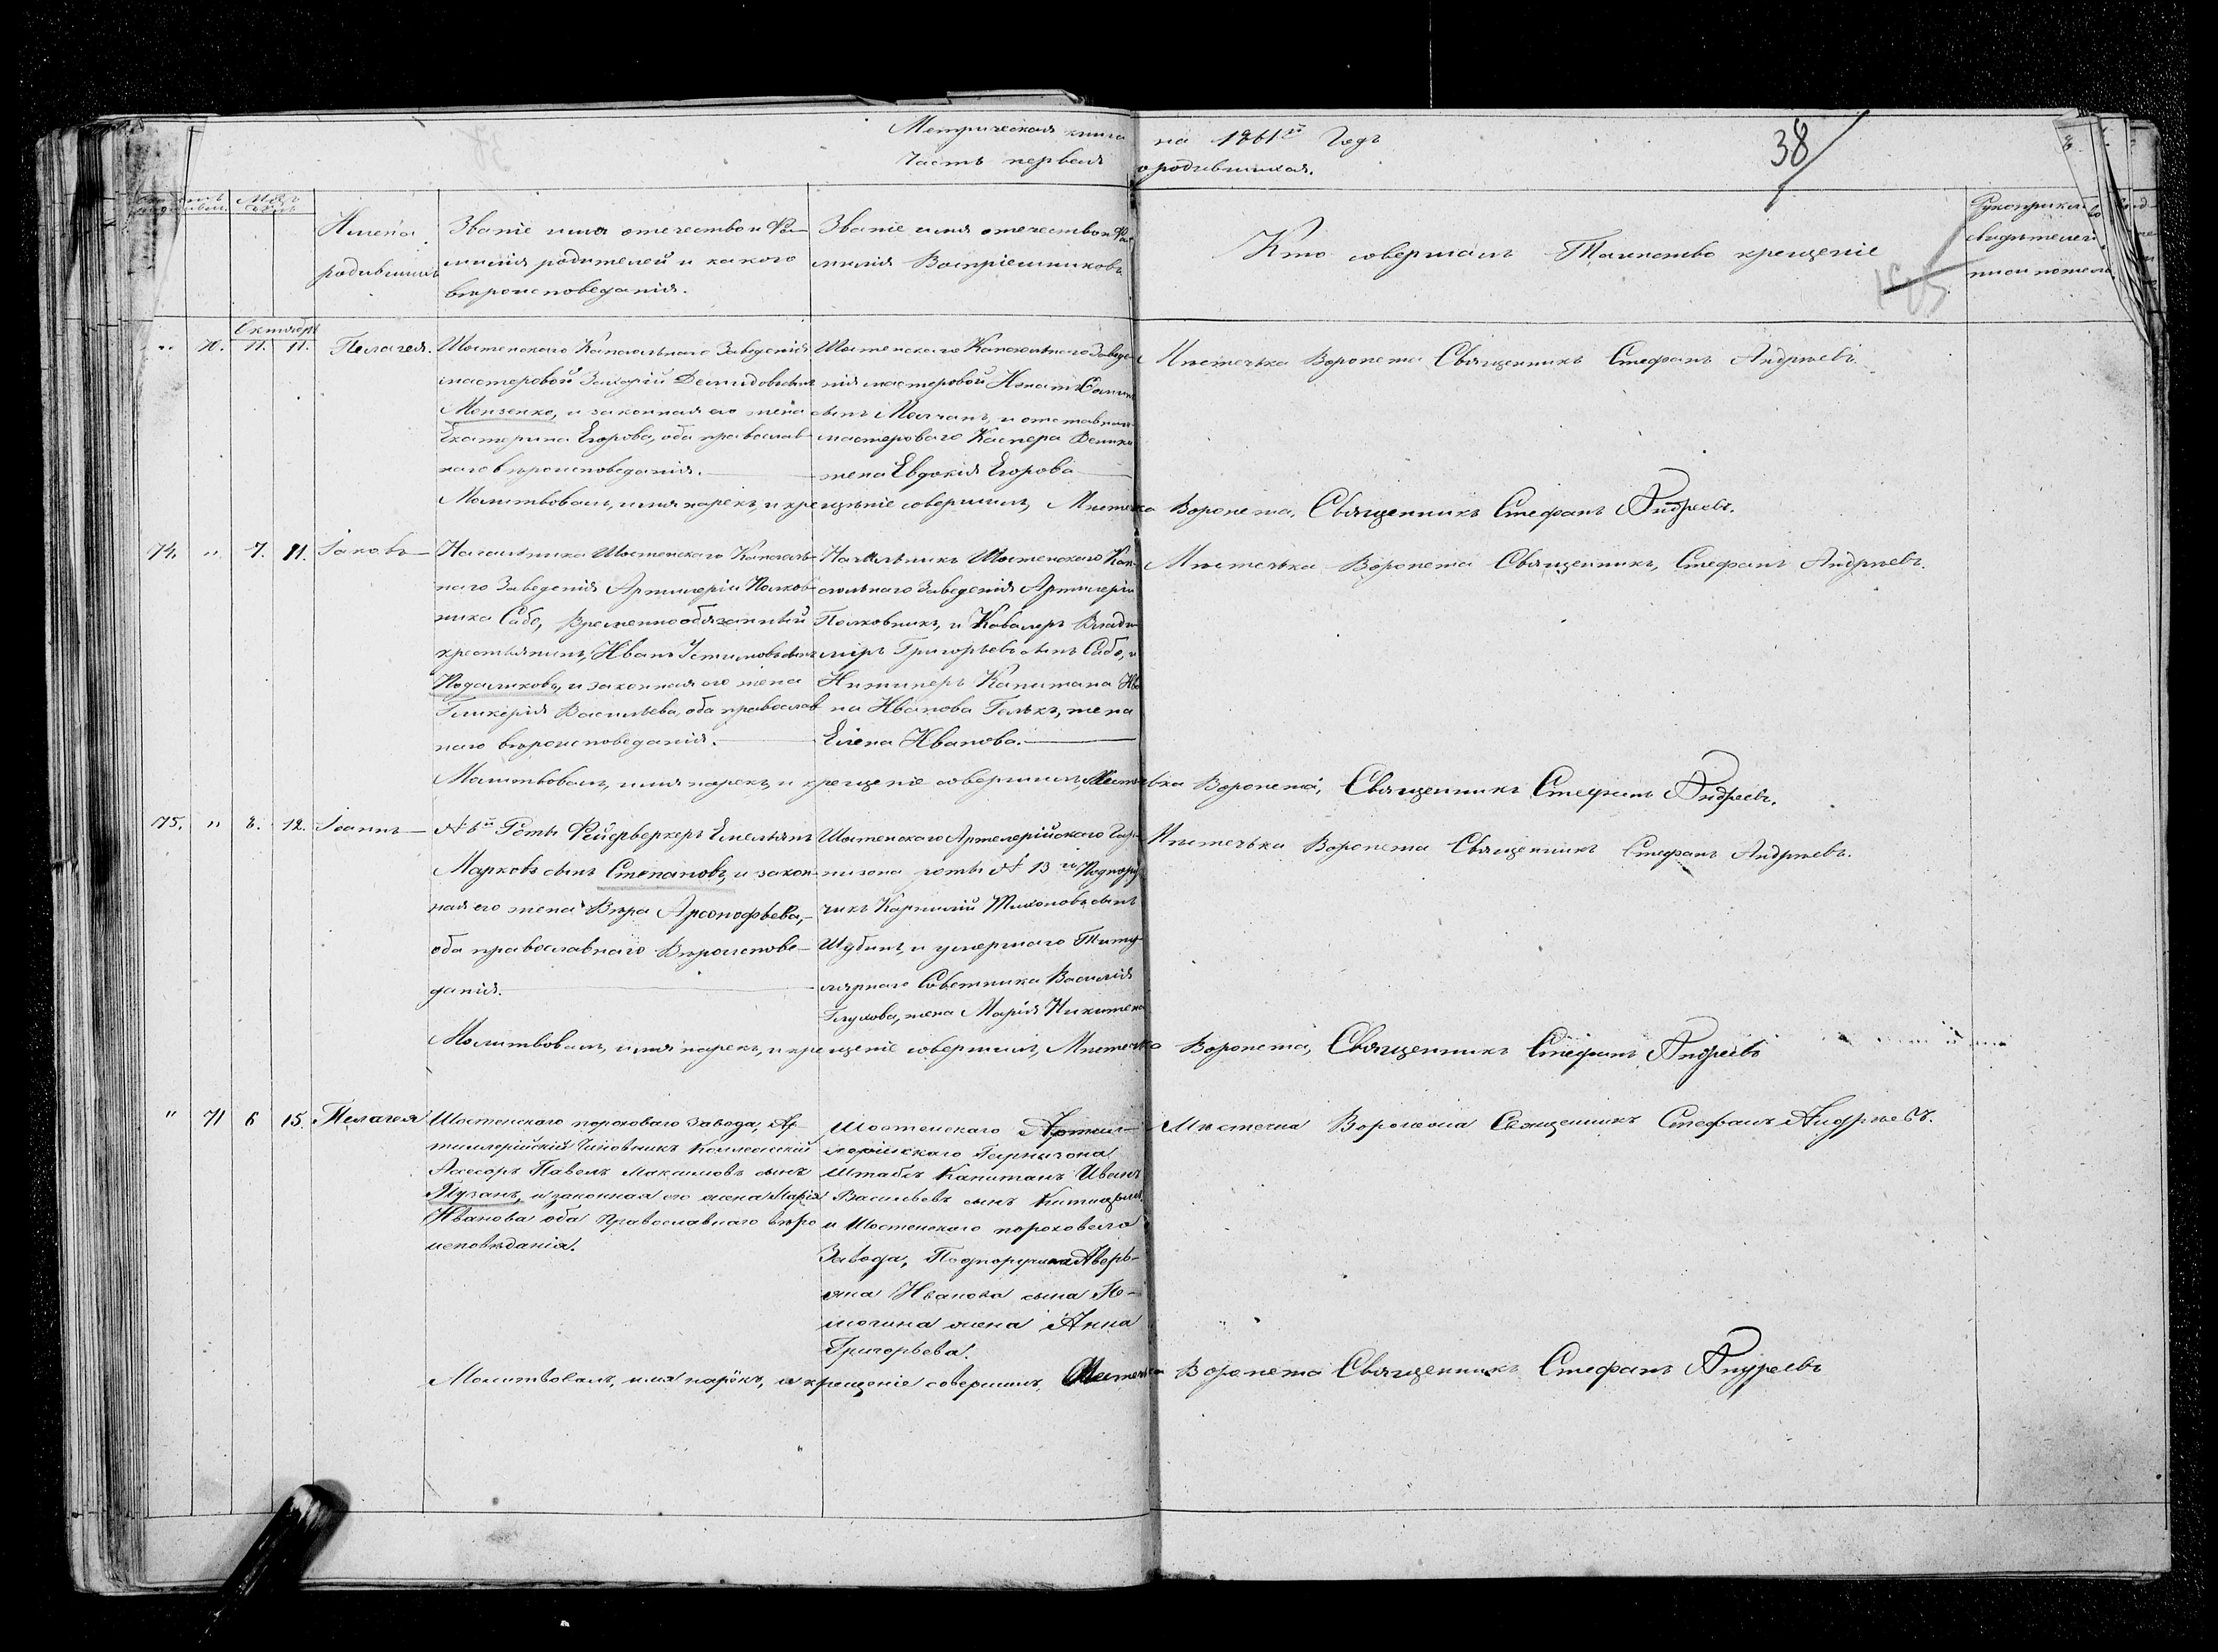 Метрическая книга на 1861й Годъ
Часть первая о родившихся.
38
Имена родившихъ
Званіе имя отечество и Фа-
милія родителей и какого
вѣроисповеданія.
Званіе имя отечество и Фа-
милія Воспріемниковъ
Кто совершалъ Таинство крещеніе
Рукоприклад
свидѣтелей
Октябрь
" 70. 11. 11. Пелагея.
Шостенского Капсюльнаго Заведенія
мастеровой Захарій Демидовъ сынъ
и законная его жена
Екатерина Егорова, оба православ-
наго вѣроисповеданія.
Шостенскаго Капсюльнаго Заведе
нія мастеровой Игнатъ
сынъ Молчанъ, и отставнаго
мастероваго
жена Евдокія Егорова
Мѣстечка Воронежа Священникъ Стефанъ Андрѣевъ.
Молитвовалъ, имя нарекъ, и крещеніе совершилъ, Мѣстечка Воронежа, Священникъ Стефанъ Андреевъ.
74. " 7. 11. Іаковъ
Начальника Шостенскаго Капсюль-
наго Заведенія Артилеріи Полков-
ника Сабо, Временнообязанный
крестьянинъ, Иванъ Устиновъ сынъ
и законная его жена
Гликерія Васильева, оба православ
наго вѣроисповеданія.
Начальникъ Шостенскаго Кап-
сюльнаго Заведенія Артилеріи
Полковникъ, и Кавалеръ Влади
міръ Григорьевъ сынъ Сабо, и
Инжинеръ Капитана Ива
на Иванова жена
Елена Иванова.
Мѣстечка Воронежа Священникъ, Стефанъ Андрѣевъ.
Молитвовалъ, имя нарекъ, и крещеніе совершилъ, Мѣстечка Воронежа, Священникъ Стефанъ Андреевъ.
75. " 8. 12. Іоаннъ
Роты Фейерверкеръ Емельянъ
Марковъ сынъ Степановъ, и закон-
ная его жена Вѣра Арсонофьева,
оба православнаго Вѣроиспове-
данія.
Шостенскаго Артелерійскаго Гар-
низона роты № 13й Подпору
чикъ Тихоновъ сынъ
Шубинъ, и умершаго Титу-
лярнаго Советника Василія
Глухова, жена Марія Никитена
Мѣстечка Воронежа Священникъ Стефанъ Андрѣевъ.
Молитвовалъ, имя нарекъ, и крещеніе совершилъ, Мѣстечка Воронежа, Священникъ Стефанъ Андреевъ
" 71 6 15. Пелагея
Шостенскаго пороховаго завода, Ар-
тиллерійскій Чиновникъ Коллежскій
Асесоръ Павелъ Максимовъ сынъ
Пузанъ, и законная его жена Марія
Иванова оба Православнаго вѣро
исповѣданія.
Шостенскаго Артил-
лерійскаго Гарнизона
Штабсъ Капитанъ Иванъ
Васильевъ сынъ
и Шостенскаго пороховаго
Завода, Подпоручика Аверь-
яна Иванова сына По-
жена Анна
Григорьева.
Мѣстечка Воронежа Священникъ Стефанъ Андрѣевъ.
Молитвовалъ, имя нарёкъ, и крещеніе совершилъ, Мѣстечка Воронежа Священникъ Стефанъ Андреевъ